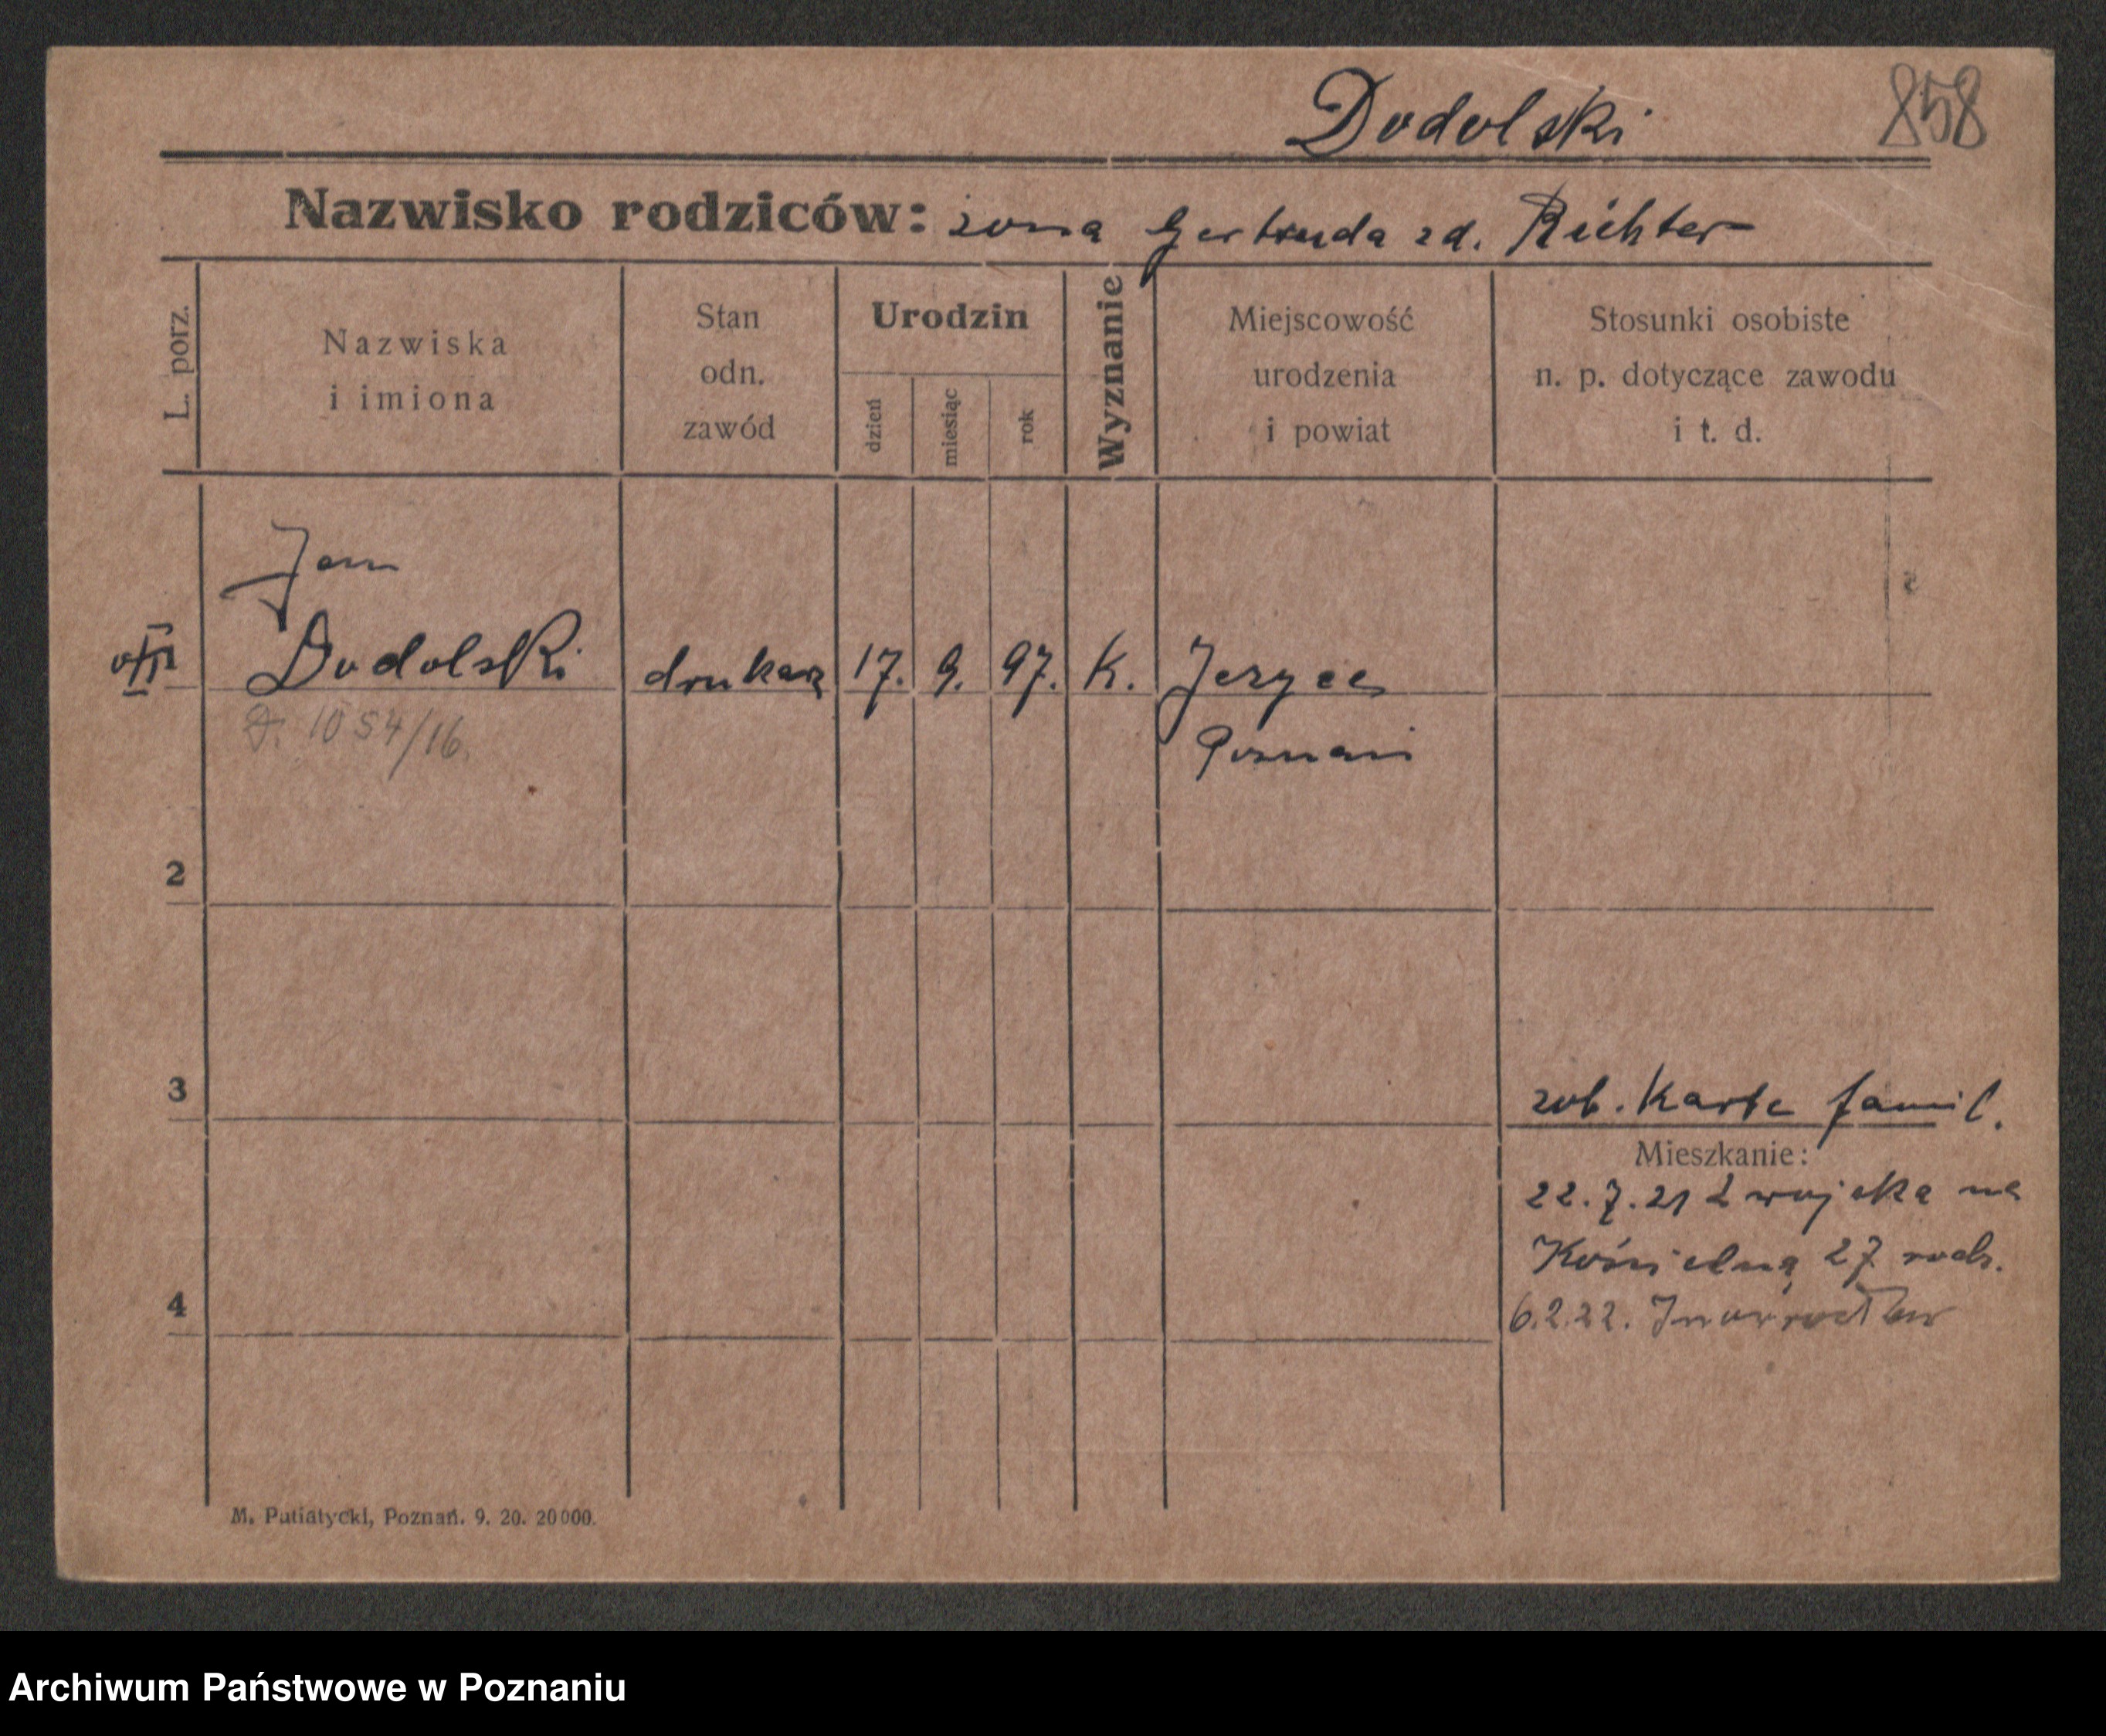 Dodolski 858
Nazwisko rodziców: żona Gertruda zd. Richter
L. porz.
Nazwiska
i imiona
Stan
odn.
zawód
Urodzin
dzień
miesiąc
rok
Wyznanie
Miejscowość
urodzenia
i powiat
Stosunki osobiste
n. p. dotyczące zawodu
i t. d.
Jan
Dodolski drukarz 17. 9. 97. K. Jerzyce
1054/16. Poznań
2
3
zob. Karte famil.
Mieszkanie:
22.7.21 z wojska na
Kościelną 27
4
6.2.22. Inowrocław
M. Putiatycki, Poznań. 9. 20. 20000.
Archiwum Państwowe w Poznaniu